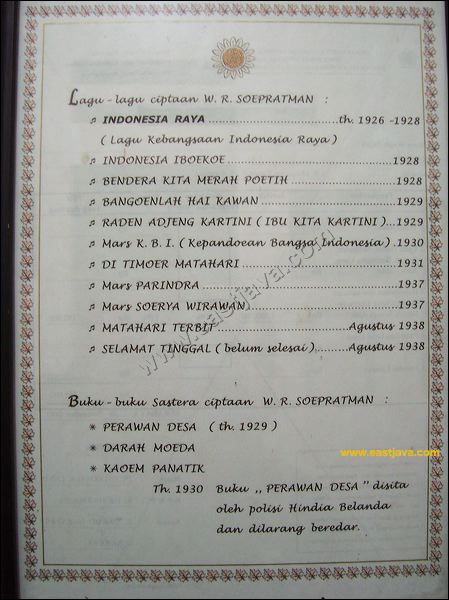 Lagu - lagu ciptaan W. R. SOEPRATMAN :
♬ INDONESIA RAYA ..............................th. 1926 -1928
( Lagu Kebangsaan Indonesia Raya )
♬ INDONESIA IBOEKOE ....................................1928
♬ BENDERA KITA MERAH POETIH ........................1928
♬ BANGOENLAH HAI KAWAN ..............................1929
♬ RADEN ADJENG KARTINI ( IBU KITA KARTINI ) ...1929
♬ Mars K. B. I. ( Kepandoean Bangsa Indonesia ) .1930
♬ DI TIMOER MATAHARI .................................1931
♬ Mars PARINDRA ..........................................1937
♬ Mars SOERYA WIRAWAN ...............................1937
♬ MATAHARI TERBIT .........................Agustus 1938
♬ SELAMAT TINGGAL ( belum selesai )..........Agustus 1938
www.eastjava.com
Buku - buku Sastera ciptaan W. R. SOEPRATMAN :
✳ PERAWAN DESA ( th. 1929 )
✳ DARAH MOEDA
www.eastjava.com
✳ KAOEM PANATIK
Th. 1930 Buku ,, PERAWAN DESA " disita
oleh polisi Hindia Belanda
dan dilarang beredar.